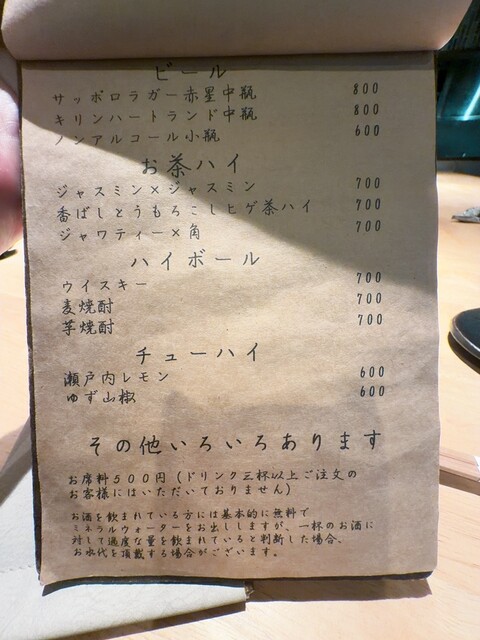 ビール
サッポロラガー赤星中瓶 800
キリンハートランド中瓶 800
ノンアルコール小瓶 600
お茶ハイ
ジャスミン×ジャスミン 700
香ばしとうもろこしヒゲ茶ハイ 700
ジャワティー×角 700
ハイボール
ウイスキー 700
麦焼酎 700
芋焼酎 700
チューハイ
瀬戸内レモン 600
ゆず山椒 600
その他いろいろあります
お席料500円(ドリンク三杯以上ご注文の
お客様にはいただいておりません)
お酒を飲まれている方には基本的に無料で
ミネラルウォーターをお出ししますが、一杯のお酒に
対して過度な量を飲まれていると判断した場合、
お水代を頂戴する場合がございます。